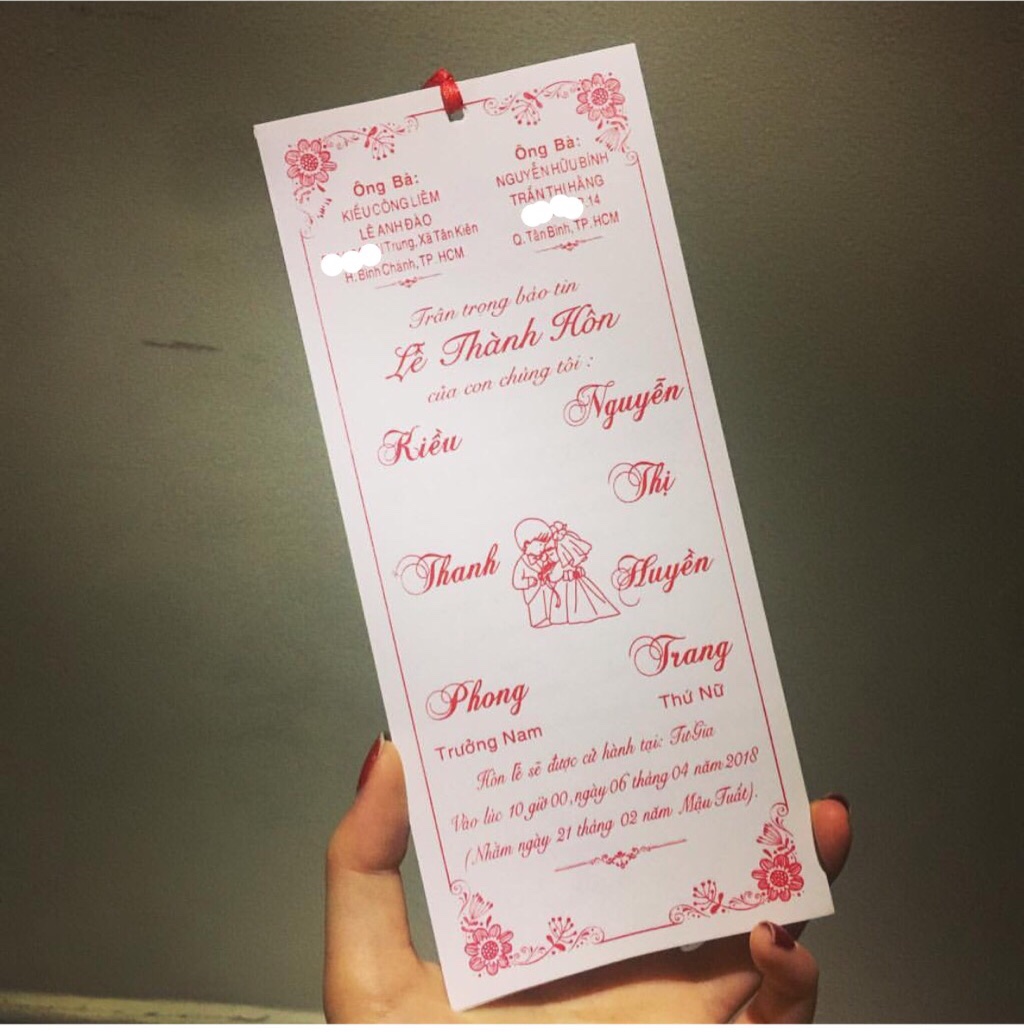 Ông Bà:
KIỀU CÔNG LIÊM
LÊ ANH ĐÀO
Trung, Xã Tân Kiên
H. Bình Chánh, TP. HCM
Ông Bà:
NGUYỄN HỮU BÍNH
TRẦN THỊ HẰNG
.14
Q. Tân Bình, TP. HCM
Trân trọng báo tin
Lễ Thành Hôn
của con chúng tôi :
Kiều
Thanh
Phong
Trưởng Nam
Nguyễn
Thị
Huyền
Trang
Thứ Nữ
Hôn lễ sẽ được cử hành tại: Tư Gia
Vào lúc 10 giờ 00, ngày 06 tháng 04 năm 2018
(Nhằm ngày 21 tháng 02 năm Mậu Tuất).